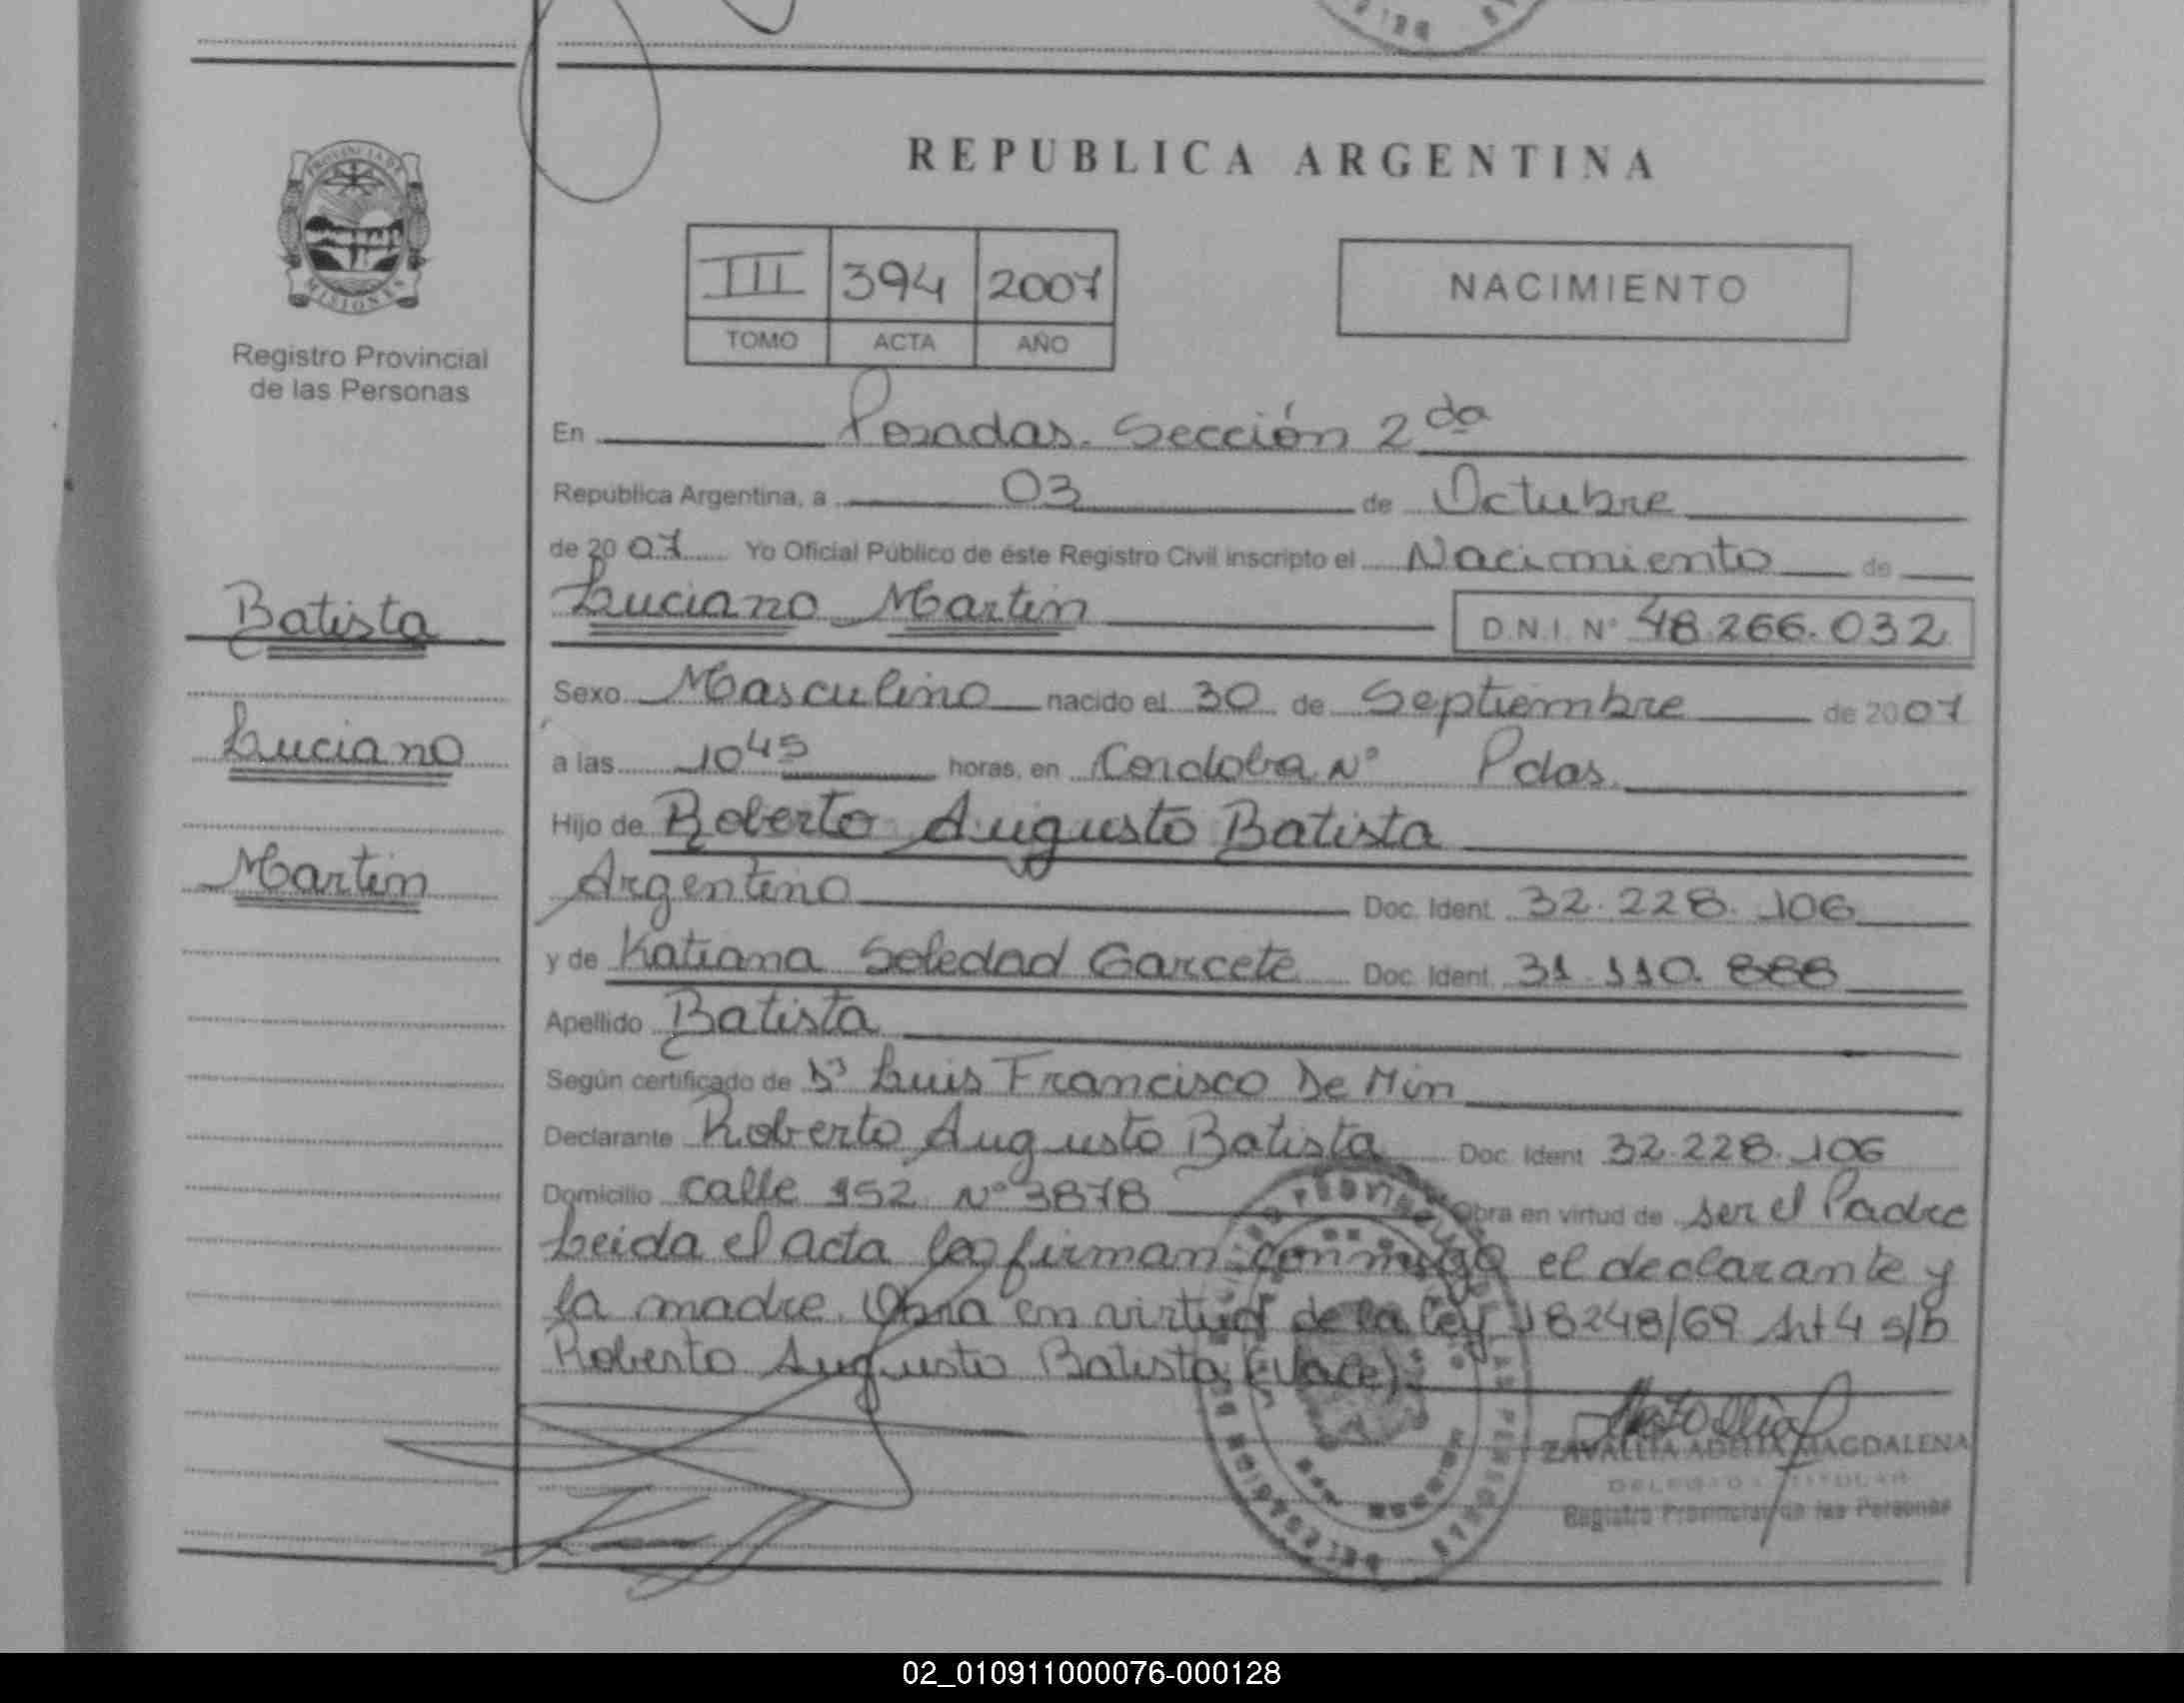 REPUBLICA ARGENTINA
PROVINCIA DE
MISIONES
Registro Provincial
de las Personas
III 394 2007
TOMO ACTA AÑO
NACIMIENTO
En Posadas. Sección 2da
República Argentina, a 03 de Octubre
de 2007 Yo Oficial Público de éste Registro Civil inscripto el Nacimiento de
Luciano Martin D.N.I. Nº 48.266.032
Batista
Luciano
Martin
Sexo Masculino nacido el 30 de Septiembre de 2007
a las 10 45 horas, en Cordoba Nº Pdas.
Hijo de Roberto Augusto Batista
Argentino Doc. Ident. 32.228.106
y de Katiana Soledad Garcete Doc. Ident. 31.110.888
Apellido Batista
Según certificado de Dr Luis Francisco De Min
Declarante Roberto Augusto Batista Doc. Ident. 32.228.106
Domicilio calle 152 Nº 3878 Obra en virtud de ser el Padre
Leida el acta la firman conmigo el declarante y
la madre. Obra en virtud de la ley 18248/69 Art 4 s/b
Roberto Augusto Batista (Vale).
ZAVALLIA ADELIA MAGDALENA
TITULAR
Registro Provincial de las Personas
02_010911000076-000128